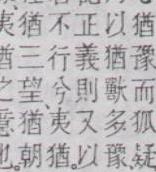 猶豫而狐疑
以猶獸多豫、
正義則又以
不行兮夷猶。
猶三望、猶朝
夷猶之意也。